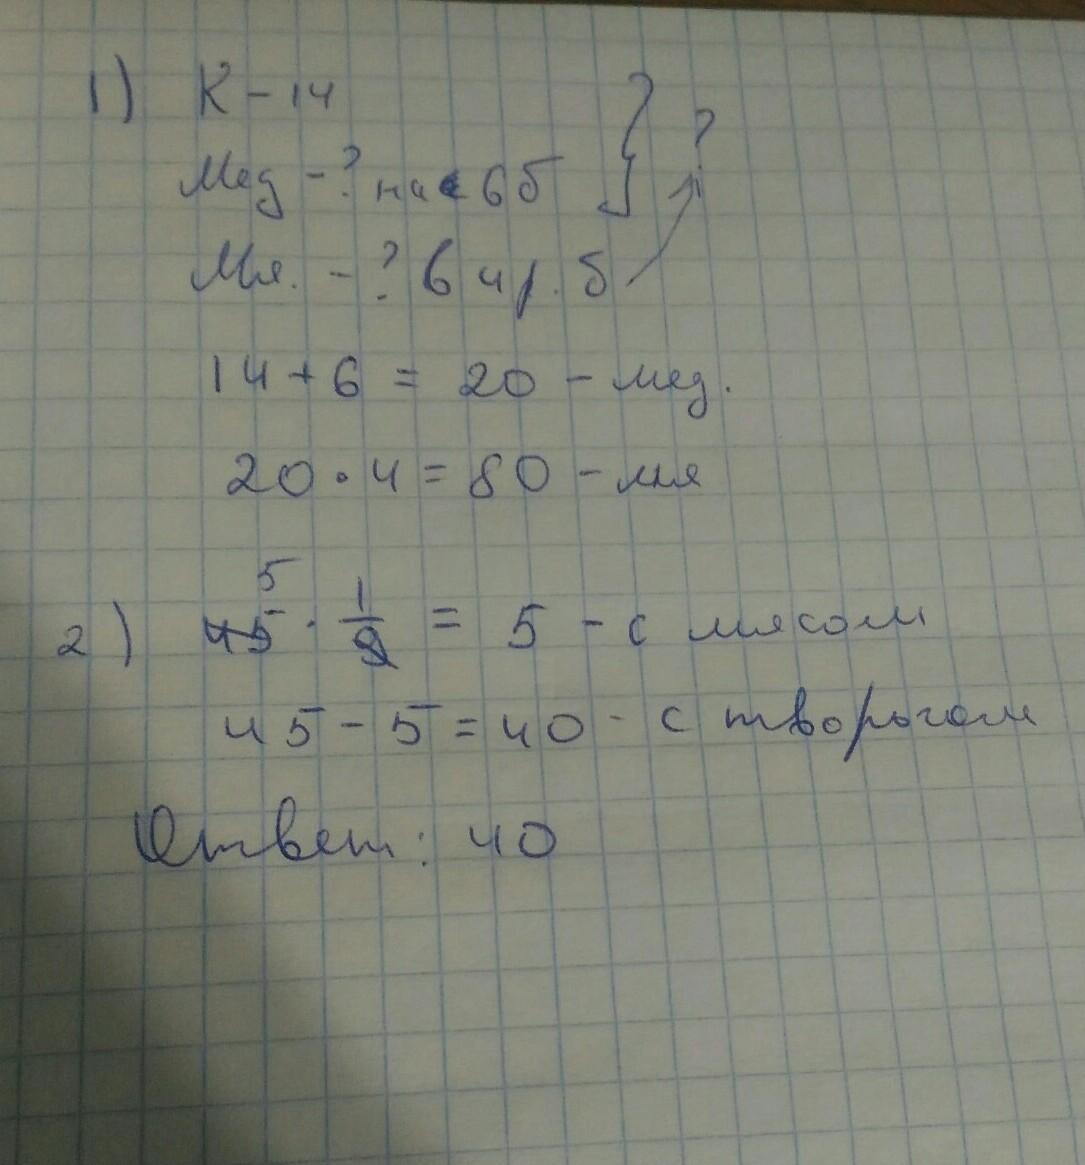 1) К - 14
Мед - ? на 6 б } ?
Мя. - ? в 4 р. б
14 + 6 = 20 - мед.
20 · 4 = 80 - мя
5
2) 45 · 1/9 = 5 - с мясом
45 - 5 = 40 - с творогом
Ответ: 40